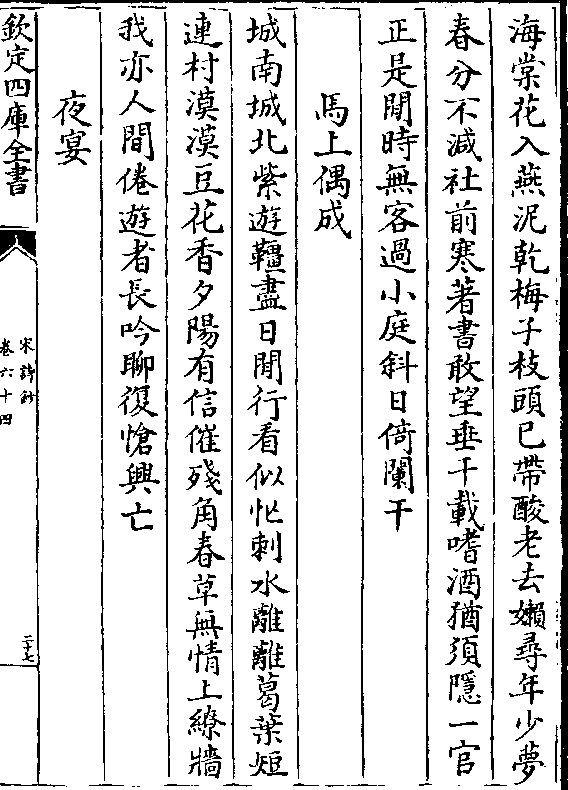 海棠花入燕泥乾梅子枝頭已帶酸老去嬾尋年少夢
春分不減社前寒著書敢望垂千載嗜酒猶須隱一官
正是閒時無客過小庭斜日倚闌干
馬上偶成
城南城北紫遊韁盡日閒行看似忙刺水離離葛葉短
連村漠漠豆花香夕陽有信催殘角春草無情上繚牆
我亦人間倦遊者長吟聊復愴興亡
夜宴
欽定四庫全書
宋詩鈔
卷六十四
二十七